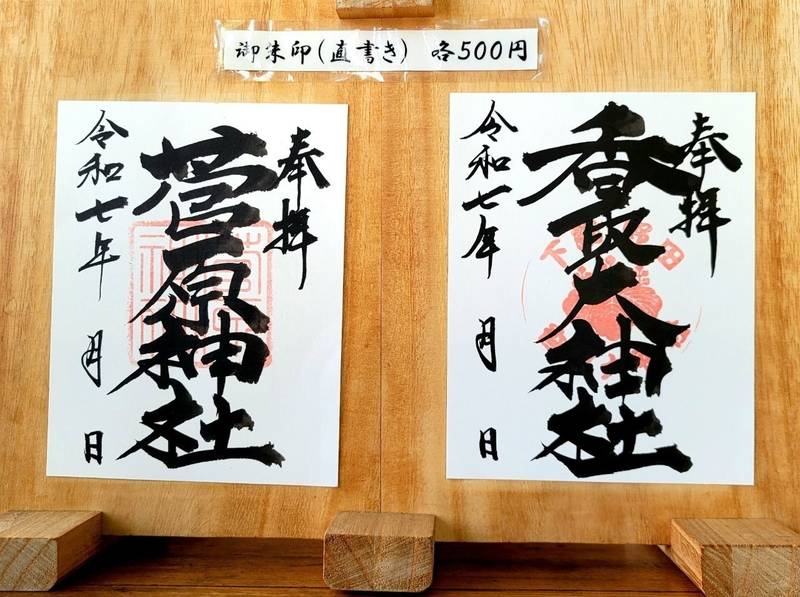 御朱印(直書き) 各500円
奉拝
菅原神社
令和七年 月 日
奉拝
香取大神社
令和七年 月 日